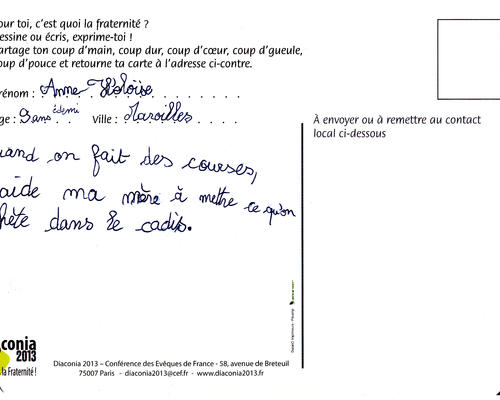 our toi, c'est quoi la fraternité ?
essine ou écris, exprime-toi !
artage ton coup d'main, coup dur, coup d'cœur, coup d'gueule,
oup d'pouce et retourne ta carte à l'adresse ci-contre.
rénom : Anne Héloïse
ge : 9ans édemi Ville : Maroilles
À envoyer ou à remettre au contact
local ci-dessous
uand on fait des courses,
aide ma mère à mettre ce qu'on
hète dans le cadis.
conia
2013
la Fraternité !
Diaconia 2013 – Conférence des Evêques de France - 58, avenue de Breteuil
75007 Paris - diaconia2013@cef.fr - www.diaconia2013.fr